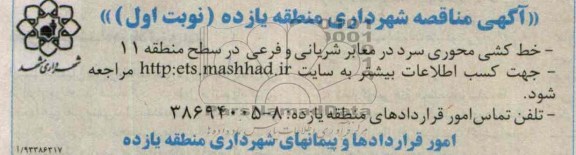 «آگهی مناقصه شهرداری منطقه یازده (نوبت اول)»
- خط کشی محوری سرد در معابر شریانی و فرعی در سطح منطقه ۱۱
- جهت کسب اطلاعات بیشتر به سایت http:ets.mashhad.ir مراجعه شود.
- تلفن تماس امور قراردادهای منطقه یازده: ۸-۳۸۶۹۴۰۰۵
امور قراردادها و پیمانهای شهرداری منطقه یازده
شهرداری مشهد
۱/۹۳۳۸۶۳۱۷
ParsNamadData